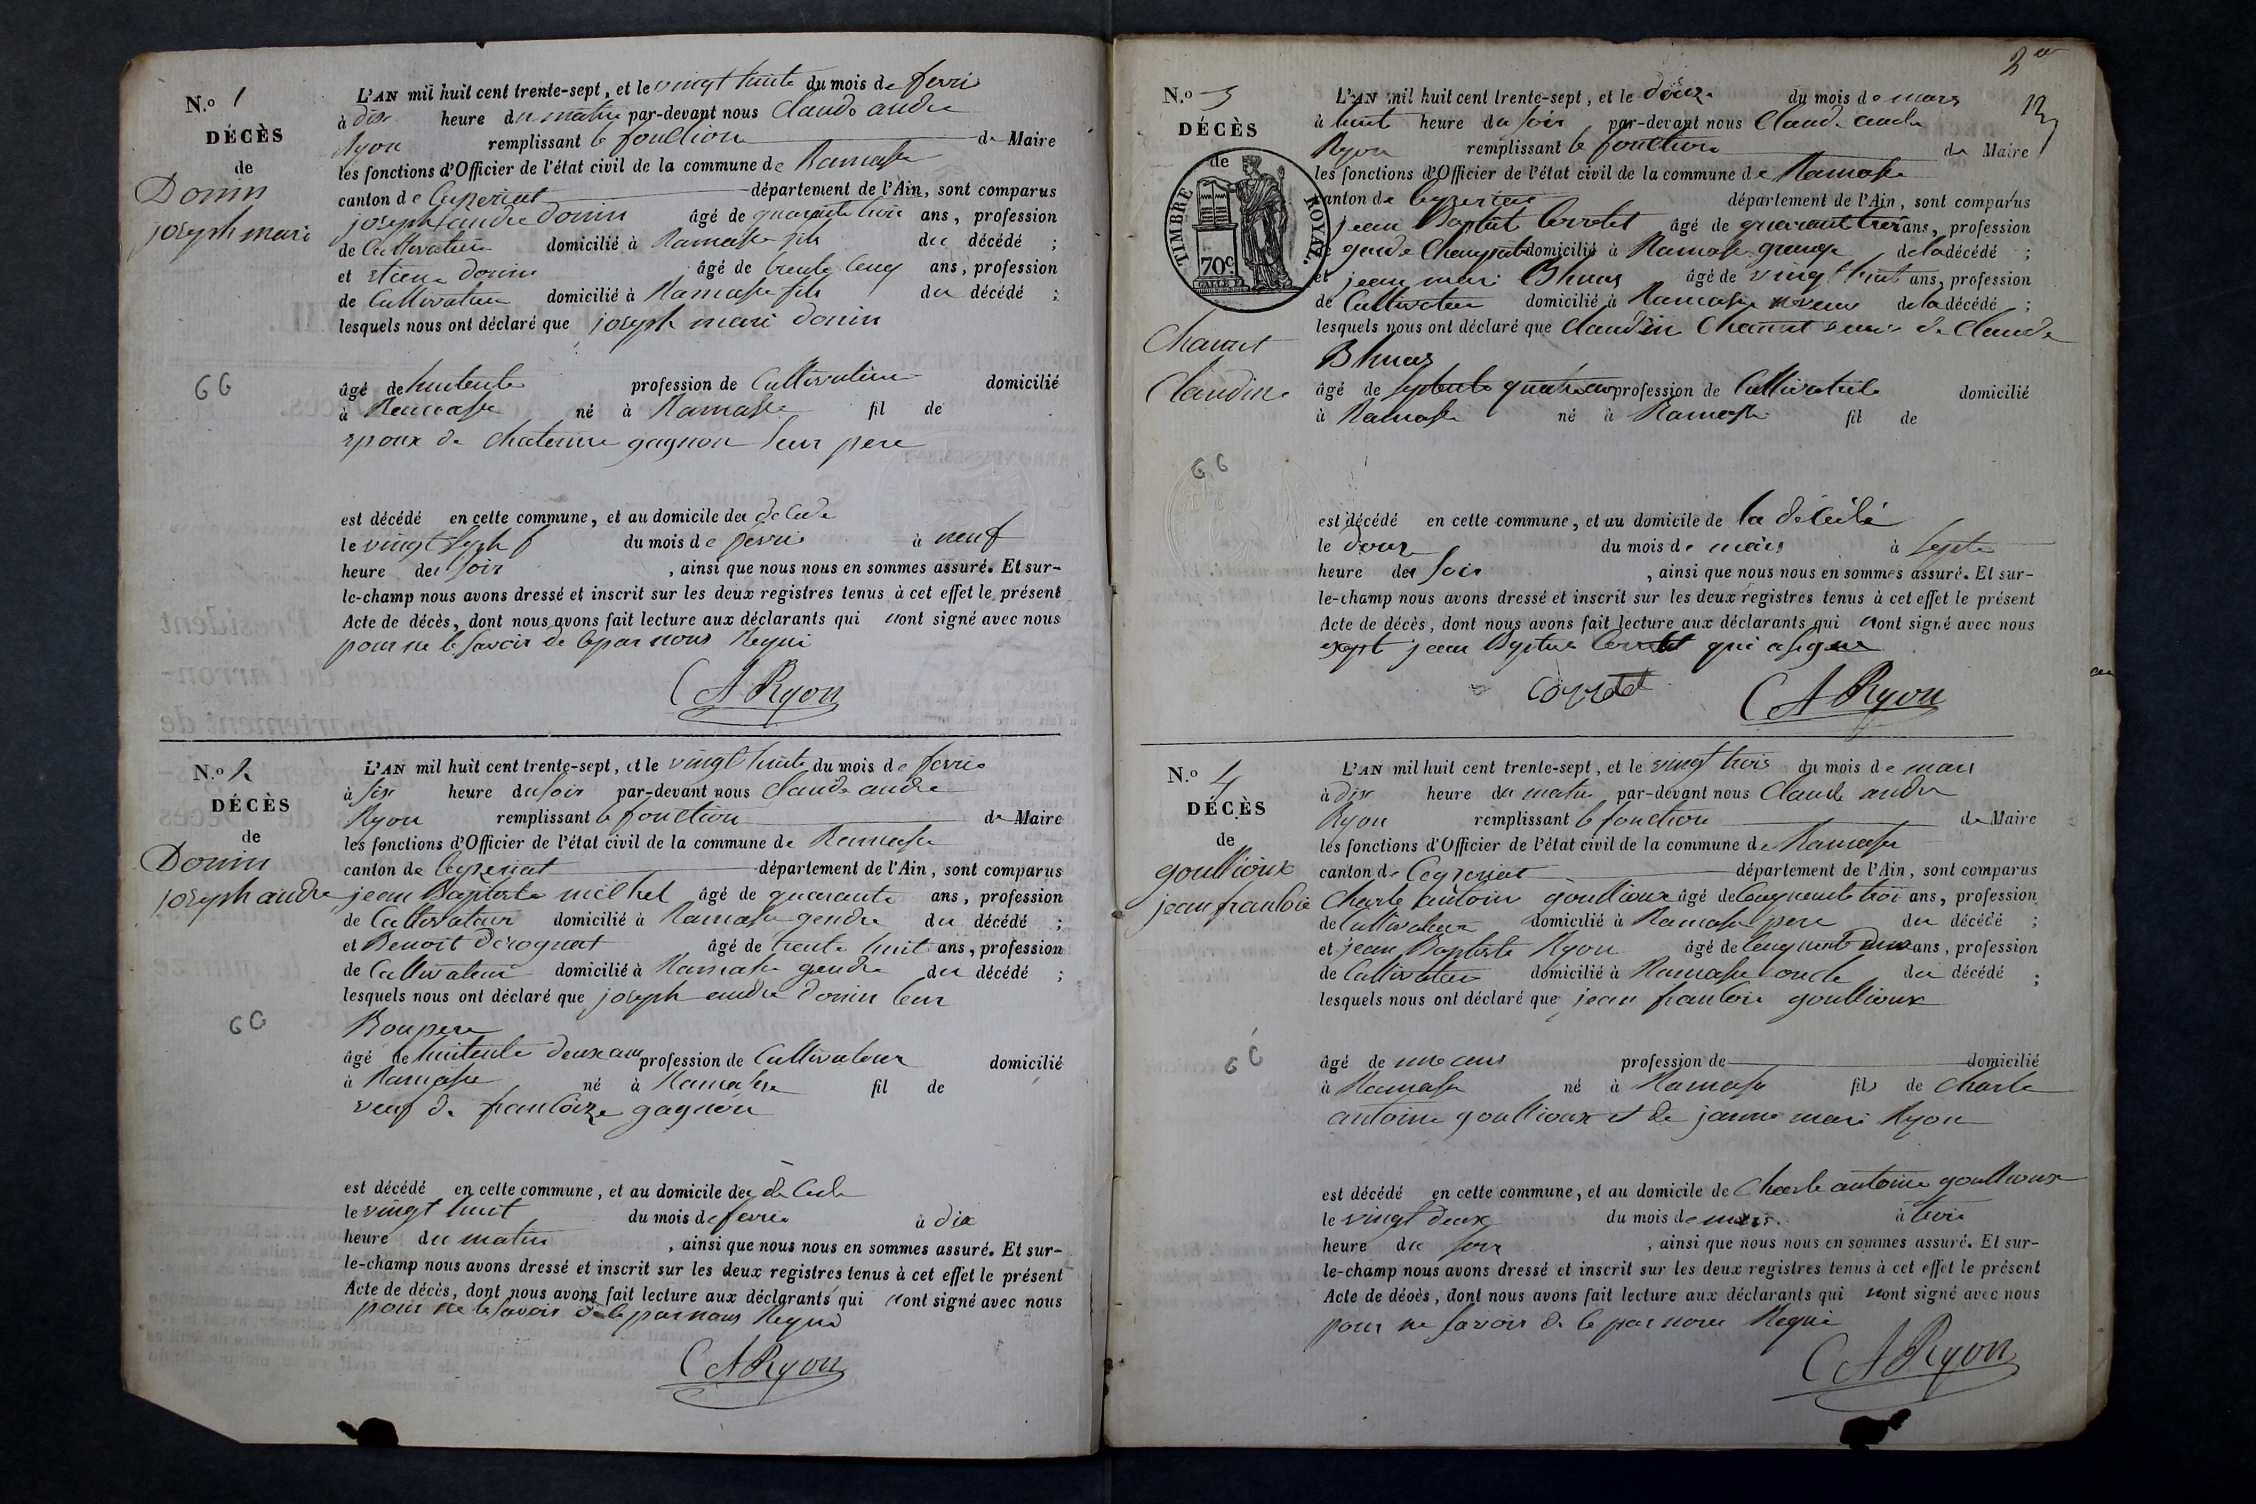 N.o 1
DÉCÈS
de
Donin
joseph mari
66
L'AN mil huit cent trente-sept, et le vingt huite du mois de fevrie
à dix heure du matin par-devant nous Claude andre
Ryon remplissant le fonction de Maire
les fonctions d'Officier de l'état civil de la commune de Ramasse
canton de Ceyzeriat département de l'Ain, sont comparus
joseph andre Donin âgé de quarante trois ans, profession
de Cultivateur domicilié à Ramasse fils du décédé ;
et etiene donin âgé de trente cenq ans, profession
de Cultivateur domicilié à Ramasse fils du décédé ;
lesquels nous ont déclaré que joseph mari donin
âgé de huitente profession de Cultivateur domicilié
à Ramasse né à Ramasse fil de
epoux de chaterine gagnon leur pere
est décédé en cette commune, et au domicile du decede
le vingt seph du mois de fevrie à neuf
heure du soir , ainsi que nous nous en sommes assuré. Et sur-
le-champ nous avons dressé et inscrit sur les deux registres tenus à cet effet le présent
Acte de décès, dont nous avons fait lecture aux déclarants qui nont signé avec nous
pour ne le savoir de le par nous Requi
CA Ryon
N.o 2
DÉCÈS
de
Donin
joseph andre
66
L'AN mil huit cent trente-sept, et le vingt huite du mois de fevrie
à six heure du soir par-devant nous Claude andre
Ryon remplissant le fonction de Maire
les fonctions d'Officier de l'état civil de la commune de Ramasse
canton de Ceyzeriat département de l'Ain, sont comparus
jean Baptiste michel âgé de quarante ans, profession
de Cultivateur domicilié à Ramasse gendre du décédé ;
et Benoit derognat âgé de trente huit ans, profession
de Cultivateur domicilié à Ramasse gendre du décédé ;
lesquels nous ont déclaré que joseph andre donin leur
Boupere
âgé de huitente deux ans profession de Cultivateur domicilié
à Ramasse né à Ramasse fil de
veuf de francoize gagnon
est décédé en cette commune, et au domicile du decede
le vingt huit du mois de fevrie à dix
heure du matin , ainsi que nous nous en sommes assuré. Et sur-
le-champ nous avons dressé et inscrit sur les deux registres tenus à cet effet le présent
Acte de décès, dont nous avons fait lecture aux déclarants qui nont signé avec nous
pour ne le savoir de le par nous Requi
CA Ryon
2
12
N.o 3
DÉCÈS
de
TIMBRE ROYAL.
70c
Chanut
Claudine
66
L'AN mil huit cent trente-sept, et le douze du mois de mars
à huit heure du soir par-devant nous Claude andre
Ryon remplissant le fonction de Maire
les fonctions d'Officier de l'état civil de la commune de Ramasse
canton de Ceyzeriat département de l'Ain, sont comparus
jean Baptist Corretet âgé de quarant trois ans, profession
de garde Champat domicilié à Ramasse de la décédé ;
et jean mari Bhuas âgé de vingt huit ans, profession
de Cultivateur domicilié à Ramasse neveu de la décédé ;
lesquels nous ont déclaré que Claudin Chanut de Claude
Bhuas
âgé de septente quatre ans profession de Cultivateur domicilié
à Ramasse né à Ramasse fil de
est décédé en cette commune, et au domicile de la décédé
le douze du mois de mars à septe
heure du soir , ainsi que nous nous en sommes assuré. Et sur-
le-champ nous avons dressé et inscrit sur les deux registres tenus à cet effet le présent
Acte de décès, dont nous avons fait lecture aux déclarants qui nont signé avec nous
exept jean Baptiste Corretet qui a signe
Corretet CA Ryon
N.o 4
DÉCÈS
de
goullioux
jean francois
66
L'AN mil huit cent trente-sept, et le vingt trois du mois de mars
à dix heure du matin par-devant nous Claude andre
Ryon remplissant le fonction de Maire
les fonctions d'Officier de l'état civil de la commune de Ramasse
canton de Ceyzeriat département de l'Ain, sont comparus
Charle antoin goullioux âgé de cenquente troi ans, profession
de Cultivateur domicilié à Ramasse pere du décédé ;
et jean Baptiste Ryon âgé de cenquent deux ans, profession
de Cultivateur domicilié à Ramasse oncle du décédé ;
lesquels nous ont déclaré que jean francois goullioux
âgé de une ans profession de domicilié
à Ramasse né à Ramasse fils de Charle
antoine goullioux et de janne mari Ryon
est décédé en cette commune, et au domicile de Charle antoine goullioux
le vingt deux du mois de mars à trois
heure du soir , ainsi que nous nous en sommes assuré. Et sur-
le-champ nous avons dressé et inscrit sur les deux registres tenus à cet effet le présent
Acte de décès, dont nous avons fait lecture aux déclarants qui nont signé avec nous
pour ne savoir de le par nous Requi
CA Ryon